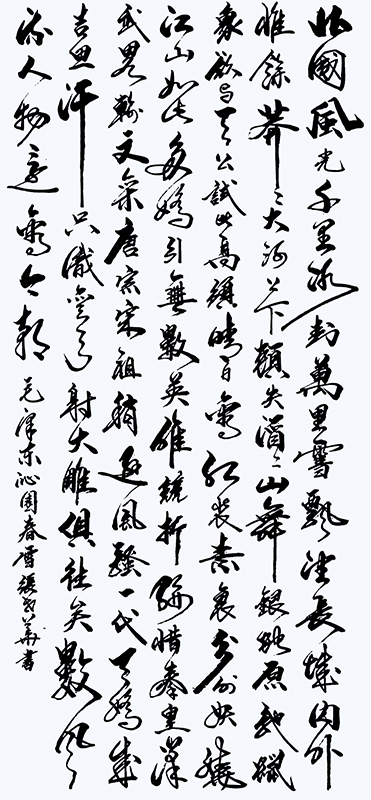 北國風光千里冰封萬里雪飄望長城內外
惟餘莽〻大河上下頓失滔〻山舞銀蛇原馳蠟
象欲與天公試比高須晴日看紅裝素裹分外妖嬈
江山如此多嬌引無數英雄競折腰惜秦皇漢
武畧輸文采唐宗宋祖稍遜風騷一代天驕成
吉思汗只識彎弓射大雕俱往矣數風
流人物還看今朝 毛澤東沁園春雪張華書